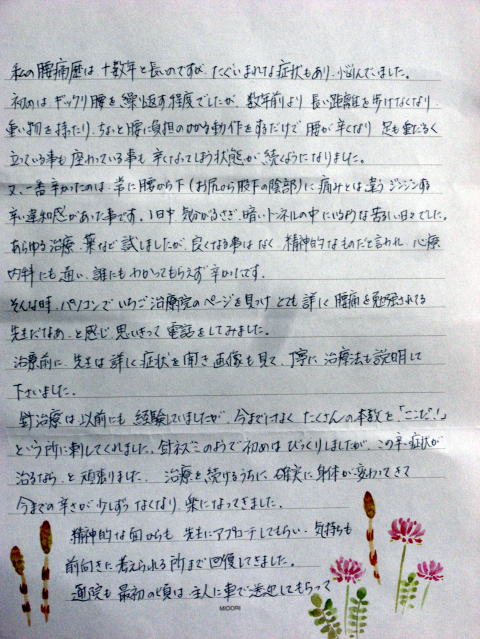 私の腰痛歴は、十数年と長いのですが、たぐいまれな症状もあり、悩んでいました。
初めは、ギックリ腰を繰り返す程度でしたが、数年前より長い距離を歩けなくなり、
重い物を持たり、ちょっと腰に負担のかかる動作をするだけで腰が辛くなり 足も重だるく
立っている事も座っている事も辛くなってしまう状態が続くようになりました。
又、一番辛かったのは、常に腰から下(お尻から股下の陰部)に痛みとは違うジンジンする
辛い違和感があった事です。1日中 気分がふさぎ、暗いトンネルの中にいるような苦しい日々でした。
あらゆる治療、薬など試しましたが、良くなる事はなく、精神的なものだと言われ、心療
内科にも通い、誰にもわかってもらえず辛かったです。
そんな時、パソコンでいちご治療院のページを見つけ とても詳しく腰痛を勉強されてる
先生だなあ、と感じ、思いきって電話をしてみました。
治療前に、先生は詳しく症状を聞き画像も見て、丁寧に治療法も説明して
下さいました。
針治療は以前にも経験していましたが、今までになく たくさんの本数を「ここだ!」
という所に刺してくれました。針ネズミのようで初めはびっくりしましたが、この辛い症状が
治るなら、と頑張りました。治療を続けるうちに、確実に身体が変わってきて
今までの辛さが少しずつなくなり、楽になってきました。
精神的な面からも 先生にアプローチしてもらい、気持ちも
前向きに考えられる所まで回復してきました。
通院も最初の頃は、主人に車で送迎してもらって
MIDORI